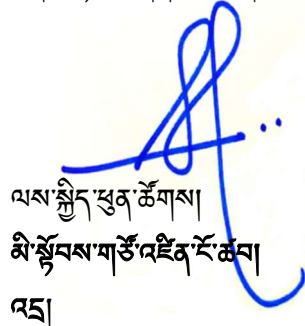 ལས་སྐྱིད་ཕུན་ཚོགས།
མི་སྟོབས་གཙོ་འཛིན་ངོ་ཚབ།
འདྲ།